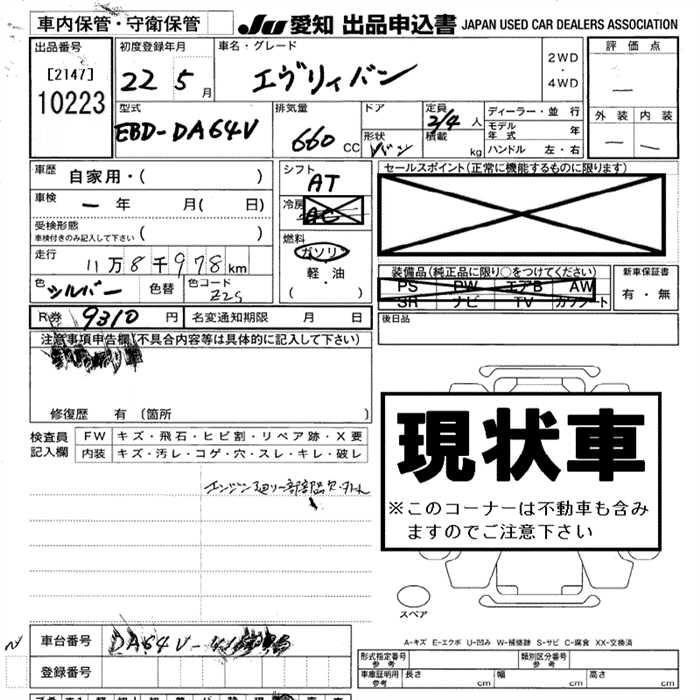 車内保管・守衛保管
JU 愛知 出品申込書 JAPAN USED CAR DEALERS ASSOCIATION
出品番号
[2147]
10223
初度登録年月
22 5 月
車名・グレード
エヴリィバン
2WD
・
4WD
評価点
—
外装 内装
— —
型式
EBD-DA64V
排気量
660 CC
ドア
形状
バン
定員
2/4 人
積載
kg
ディーラー・並行
モデル年式 年
ハンドル 左・右
車歴
自家用・( )
車検
— 年 月( 日)
受検形態
車検付きのみ記入して下さい ( )
走行
11万8千978km
色
シルバー
色替
色コード
Z2S
シフト
AT
冷房
AC
燃料
ガソリン
軽・油
( ・ )
セールスポイント(正常に機能するものに限ります)
装備品(純正品に限り○をつけてください)
PS PW エアB AW
SR ナビ TV カワシート
新車保証書
有・無
R券 9310 円
名変通知期限 月 日
後日品
注意事項申告欄(不具合内容等は具体的に記入して下さい)
修復歴 有 (箇所 )
検査員
記入欄
FW キズ・飛石・ヒビ割・リペア跡・X要
内装 キズ・汚レ・コゲ・穴・スレ・キレ・破レ
現状車
※このコーナーは不動車も含み
ますのでご注意下さい
スペア
A-キズ E-エクボ U-凹み W-補修跡 S-サビ C-腐食 XX-交換済
車台番号
DA64V-
登録番号
形式指定番号
参考
類別区分番号
参考
車庫証明用
参考
長さ cm 幅 cm 高さ cm